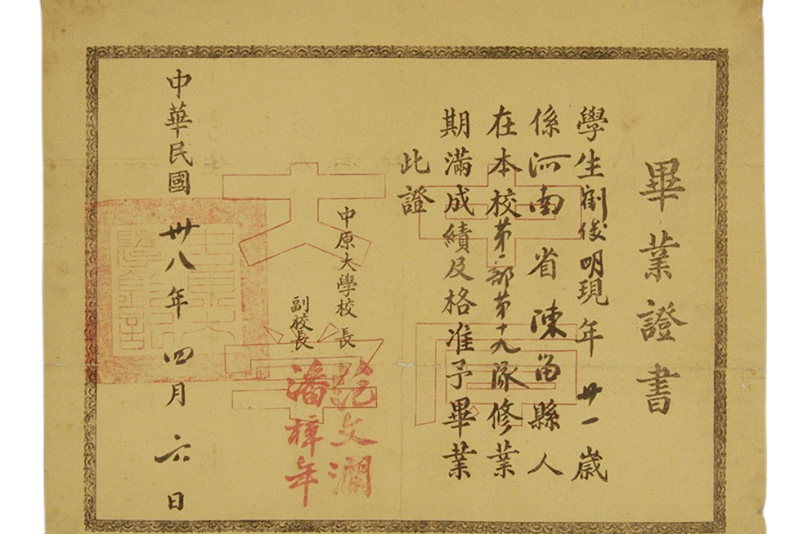 畢業證書
學生劉俊明現年廿一歲
係河南省陳留縣人
在本校第一部第十九隊修業
期滿成績及格准予畢業
此證
中原大學校長 范文瀾
副校長 潘梓年
中華民國卅八年四月六日
中原
大學